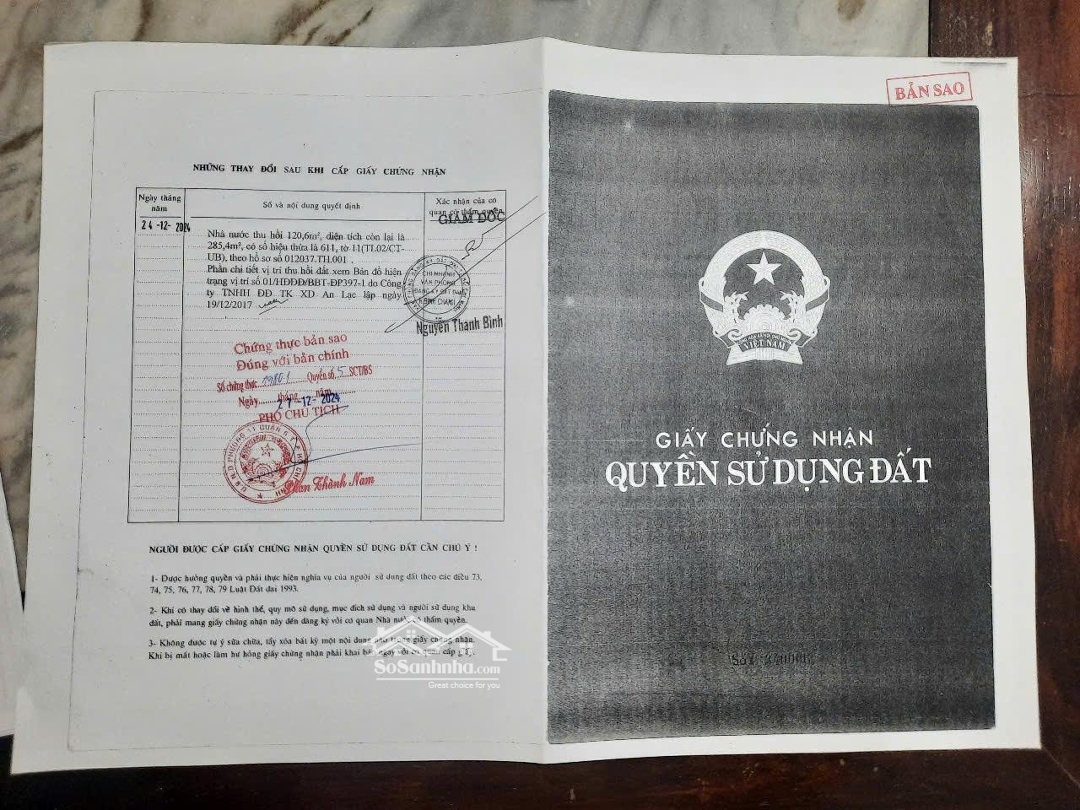 NHỮNG THAY ĐỔI SAU KHI CẤP GIẤY CHỨNG NHẬN
Ngày tháng năm
Số và nội dung quyết định
Xác nhận của cơ quan có thẩm quyền
24-12-2024
Nhà nước thu hồi 120,6m², diện tích còn lại là
285,4m², có số hiệu thửa là 611, tờ 11(TL02/CT-
UB), theo hồ sơ số 012037.TH.001 .
Phần chi tiết vị trí thu hồi đất xem Bản đồ hiện
trạng vị trí số 01/HĐĐĐ/BBT-ĐP397-1 do Công
ty TNHH ĐĐ TK XD An Lạc lập ngày
19/12/2017
GIÁM ĐỐC
CHI NHÁNH
VĂN PHÒNG
ĐĂNG KÝ ĐẤT ĐAI
Nguyễn Thanh Bình
Chứng thực bản sao
Đúng với bản chính
Số chứng thực Quyển số 5 SCT/BS
Ngày tháng năm
27-12-2024
PHÓ CHỦ TỊCH
Phan Thành Nam
NGƯỜI ĐƯỢC CẤP GIẤY CHỨNG NHẬN QUYỀN SỬ DỤNG ĐẤT CẦN CHÚ Ý !
1- Được hưởng quyền và phải thực hiện nghĩa vụ của người sử dụng đất theo các điều 73,
74, 75, 76, 77, 78, 79 Luật Đất đai 1993.
2- Khi có thay đổi về hình thể, quy mô sử dụng, mục đích sử dụng và người sử dụng khu
đất, phải mang giấy chứng nhận này đến đăng ký với cơ quan Nhà nước có thẩm quyền.
3- Không được tự ý sửa chữa, tẩy xóa bất kỳ một nội dung nào trong giấy chứng nhận.
Khi bị mất hoặc làm hư hỏng giấy chứng nhận phải khai báo ngay với cơ quan cấp giấy.
SoSanhnha.com
Great choice for you
BẢN SAO
VIỆT NAM
GIẤY CHỨNG NHẬN
QUYỀN SỬ DỤNG ĐẤT